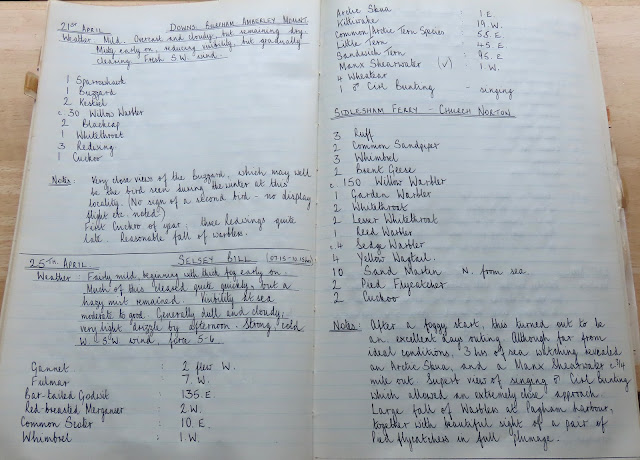 21st APRIL DOWNS BURPHAM AMBERLEY MOUNT.
Weather: Mild. Overcast and cloudy, but remaining dry.
Misty early on, reducing visibility, but gradually
clearing. Fresh S.W. wind.
1 Sparrowhawk
1 Buzzard
2 Kestrel
c. 30 Willow Warbler
2 Blackcap
1 Whitethroat
3 Redwing
1 Cuckoo
Notes: Very close views of the buzzard, which may well
be the bird seen during the winter at this
locality. (No sign of a second bird - no display
flight etc. noted)
First Cuckoo of year; three redwings quite
late. Reasonable fall of warblers.
25TH APRIL SELSEY BILL (0715-10.15am)
Weather: Fairly mild, beginning with thick fog early on.
Much of this cleared quite quickly, but a
hazy mist remained. Visibility at sea
moderate to good. Generally dull and cloudy,
very light drizzle by afternoon. Strong, cold
W. SW wind, force 5-6
Gannet : 2 flew W.
Fulmar : 7. W.
Bar-tailed Godwit : 135. E.
Red-breasted Merganser : 2 W.
Common Scoter : 10. E.
Whimbrel : 1. W.
Arctic Skua : 1. E
Kittiwake : 19. W.
Common/Arctic Tern Species : 55. E
Little Tern : 45. E.
Sandwich Tern : 95. E.
Manx Shearwater (✓) : 1. W.
4 Wheatear
1 ♂ Cirl Bunting - singing
SIDLESHAM FERRY - CHURCH NORTON
3 Ruff
2 Common Sandpiper
3 Whimbrel
2 Brent Geese
c. 150 Willow Warbler
1 Garden Warbler
2 Whitethroat
2 Lesser Whitethroat
1 Reed Warbler
c. 4 Sedge Warbler
4 Yellow Wagtail.
10 Sand Martin N. from sea.
2 Pied Flycatcher
2 Cuckoo
Notes: After a foggy start, this turned out to be
an excellent days outing. Although far from
ideal conditions, 3 hrs of sea watching revealed
an Arctic Skua, and a Manx Shearwater c. 3/4
mile out. Superb view of singing ♂ Cirl Bunting
which allowed an extremely close approach.
Large fall of Warblers at Pagham harbour,
together with beautiful sight of a pair of
Pied flycatchers in full plumage.